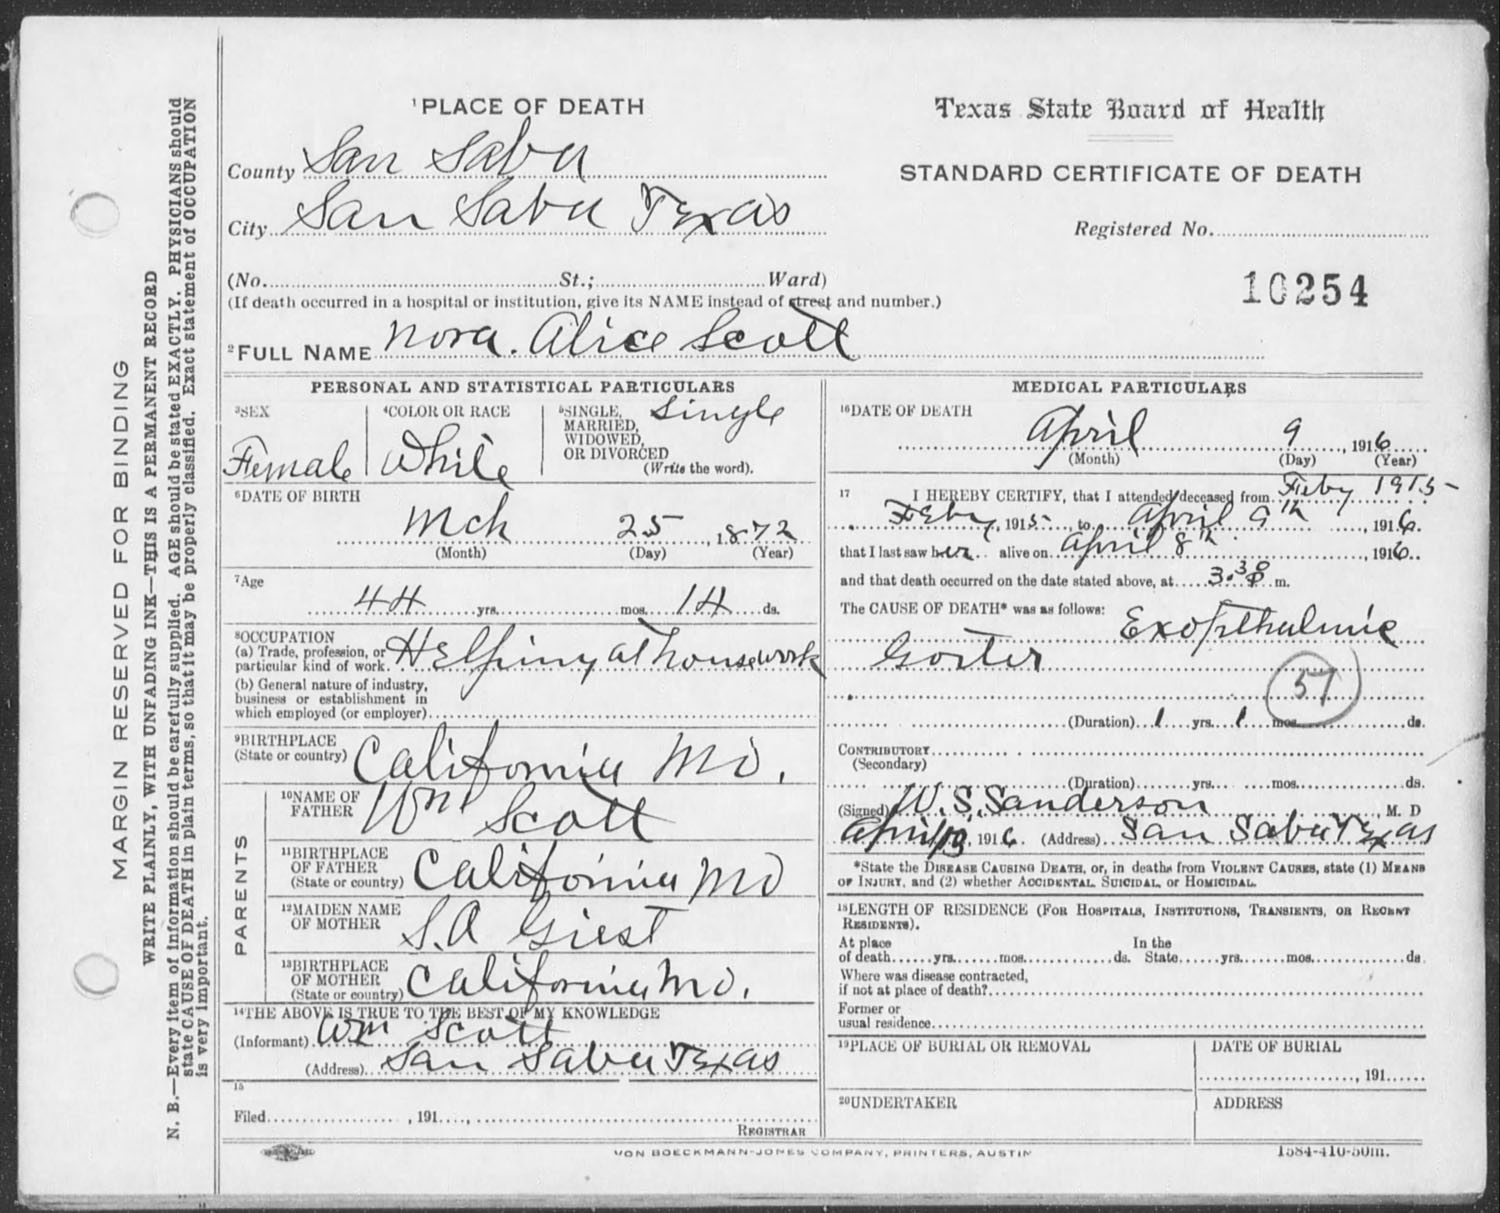 ¹PLACE OF DEATH
County San Saba
City San Saba Texas
(No. St.; Ward)
(If death occurred in a hospital or institution, give its NAME instead of street and number.)
²FULL NAME Nora. Alice Scott
Texas State Board of Health
STANDARD CERTIFICATE OF DEATH
Registered No.
10254
PERSONAL AND STATISTICAL PARTICULARS
³SEX
Female
⁴COLOR OR RACE
White
⁵SINGLE, Single
MARRIED,
WIDOWED,
OR DIVORCED
(Write the word).
⁶DATE OF BIRTH
Mch 25, 1872
(Month) (Day) (Year)
⁷Age
44 yrs. mos. 14 ds.
⁸OCCUPATION
(a) Trade, profession, or
particular kind of work. Helping at housework
(b) General nature of industry,
business or establishment in
which employed (or employer).
⁹BIRTHPLACE
(State or country) California Mo.
PARENTS
¹⁰NAME OF
FATHER Wm Scott
¹¹BIRTHPLACE
OF FATHER
(State or country) California Mo
¹²MAIDEN NAME
OF MOTHER S.A Giest
¹³BIRTHPLACE
OF MOTHER
(State or country) California Mo.
¹⁴THE ABOVE IS TRUE TO THE BEST OF MY KNOWLEDGE
(Informant) Wm Scott
(Address) San Saba Texas
15
Filed , 191 ,
REGISTRAR
MEDICAL PARTICULARS
¹⁶DATE OF DEATH
April 9, 1916
(Month) (Day) (Year)
17 I HEREBY CERTIFY, that I attended deceased from Feby 1915
Feby, 1915, to April 9th, 1916.
that I last saw her alive on April 8th, 1916
and that death occurred on the date stated above, at 3.30 m.
The CAUSE OF DEATH* was as follows: Exopthalmic
Goiter
51
(Duration) 1 yrs. 1 mos. ds.
CONTRIBUTORY
(Secondary)
(Duration) yrs. mos. ds.
(Signed) W. S. Sanderson, M. D
April 13, 1916 (Address) San Saba Texas
*State the DISEASE CAUSING DEATH, or, in deaths from VIOLENT CAUSES, state (1) MEANS
OF INJURY, and (2) whether ACCIDENTAL SUICIDAL, or HOMICIDAL.
¹⁸LENGTH OF RESIDENCE (FOR HOSPITALS, INSTITUTIONS, TRANSIENTS, OR RECENT
RESIDENTS).
At place In the
of death yrs. mos. ds. State yrs. mos. ds.
Where was disease contracted,
if not at place of death?
Former or
usual residence
¹⁹PLACE OF BURIAL OR REMOVAL
DATE OF BURIAL
, 191
²⁰UNDERTAKER
ADDRESS
VON BOECKMANN-JONES COMPANY, PRINTERS, AUSTIN
1584-410-50m.
MARGIN RESERVED FOR BINDING
WRITE PLAINLY, WITH UNFADING INK—THIS IS A PERMANENT RECORD
N. B.—Every item of information should be carefully supplied. AGE should be stated EXACTLY. PHYSICIANS should
state CAUSE OF DEATH in plain terms, so that it may be properly classified. Exact statement of OCCUPATION
is very important.